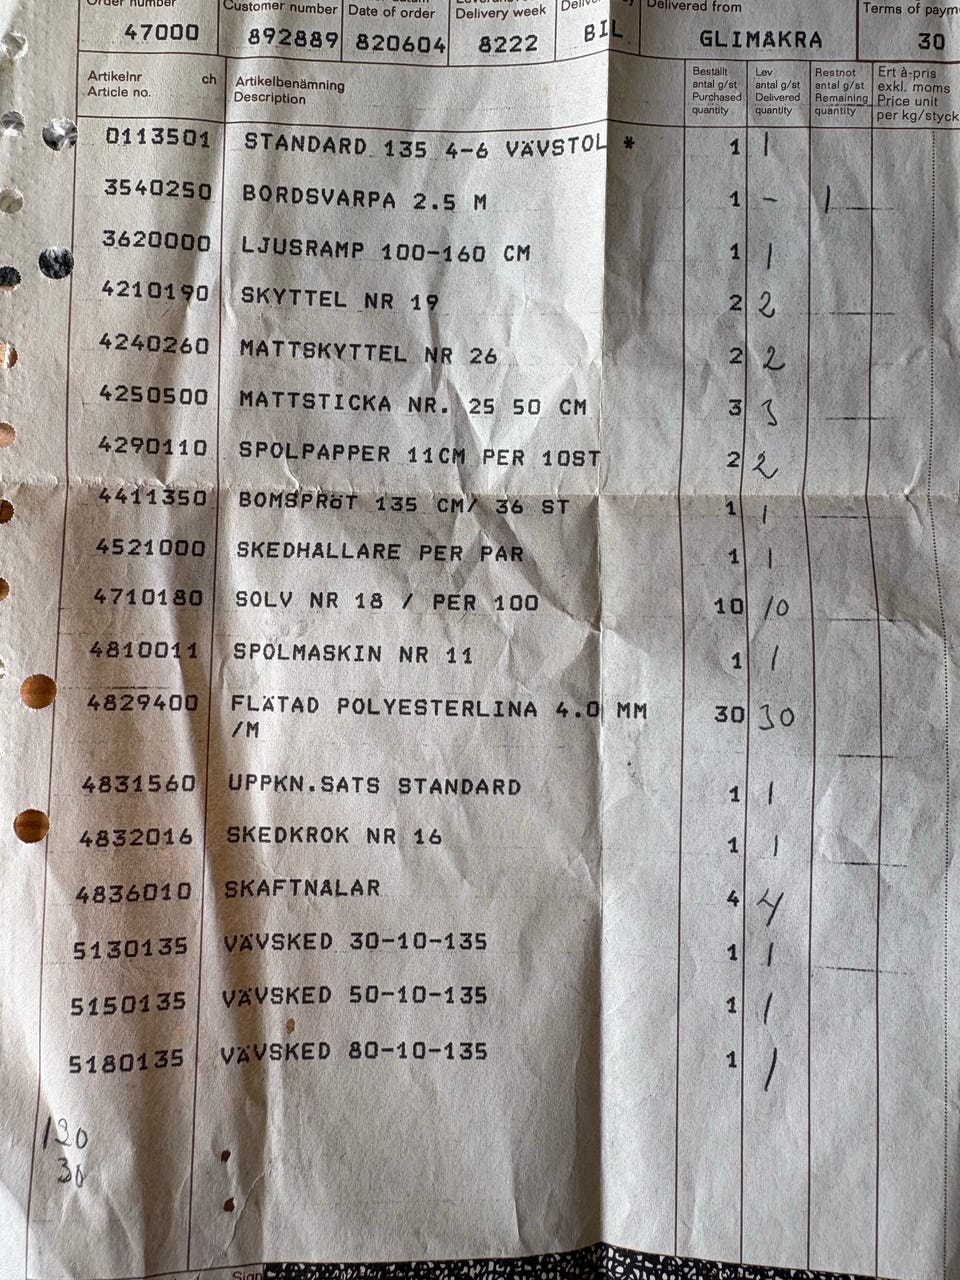 Order number Customer number Date of order Delivery week Delivered from Terms of paym
47000 892889 820604 8222 BIL GLIMÅKRA 30
Artikelnr ch Artikelbenämning Beställt Lev Restnot Ert à-pris
Article no. Description antal g/st antal g/st antal g/st exkl. moms
Purchased Delivered Remaining Price unit
quantity quantity quantity per kg/styck
0113501 STANDARD 135 4-6 VÄVSTOL * 1 1
3540250 BORDSVARPA 2.5 M 1 - 1
3620000 LJUSRAMP 100-160 CM 1 1
4210190 SKYTTEL NR 19 2 2
4240260 MATTSKYTTEL NR 26 2 2
4250500 MATTSTICKA NR. 25 50 CM 3 3
4290110 SPOLPAPPER 11CM PER 10ST 2 2
4411350 BOMSPRÖT 135 CM/ 36 ST 1 1
4521000 SKEDHÅLLARE PER PAR 1 1
4710180 SOLV NR 18 / PER 100 10 10
4810011 SPOLMASKIN NR 11 1 1
4829400 FLÄTAD POLYESTERLINA 4.0 MM 30 30
/M
4831560 UPPKN.SATS STANDARD 1 1
4832016 SKEDKROK NR 16 1 1
4836010 SKAFTNÅLAR 4 4
5130135 VÄVSKED 30-10-135 1 1
5150135 VÄVSKED 50-10-135 1 1
5180135 VÄVSKED 80-10-135 1 1
120
30